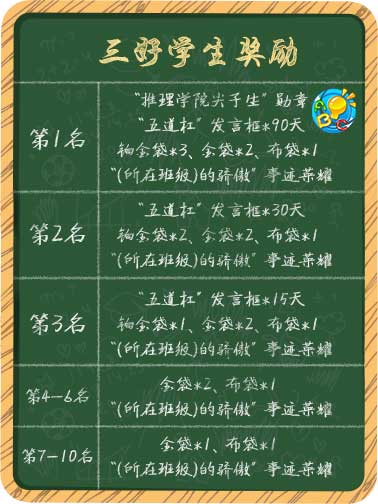 三好学生奖励
第1名
“推理学院尖子生”勋章
“五道杠”发言框*90天
铂金袋*3、金袋*2、布袋*1
“(所在班级)的骄傲”事迹荣耀
第2名
“五道杠”发言框*30天
铂金袋*2、金袋*2、布袋*1
“(所在班级)的骄傲”事迹荣耀
第3名
“五道杠”发言框*15天
铂金袋*1、金袋*2、布袋*1
“(所在班级)的骄傲”事迹荣耀
第4-6名
金袋*2、布袋*1
“(所在班级)的骄傲”事迹荣耀
第7-10名
金袋*1、布袋*1
“(所在班级)的骄傲”事迹荣耀